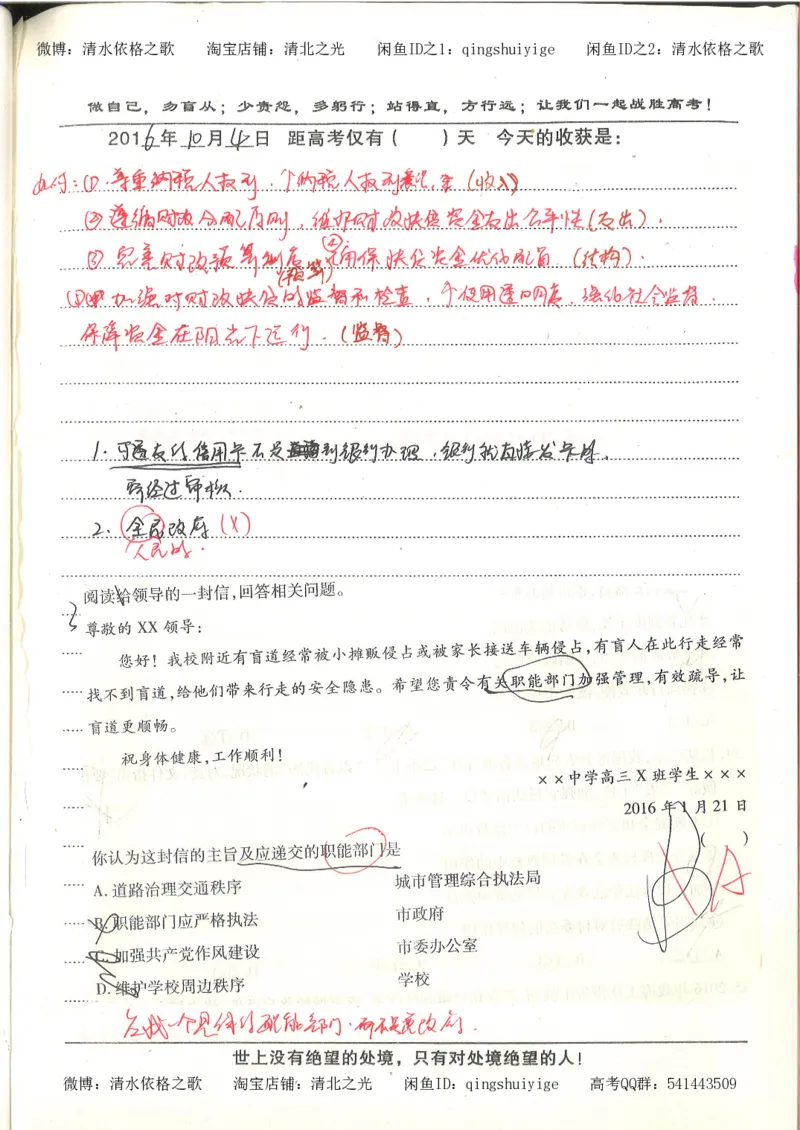 微博：清水依格之歌 淘宝店铺：清北之光 闲鱼ID之1：qingshuiyige 闲鱼ID之2：清水依格之歌
做自己，勿盲从；少责怨，多躬行；站得直，方行远；让我们一起战胜高考！
2016年10月4日 距高考仅有（ ）天 今天的收获是：
①尊重纳税人权利，（收入）
②遵循财政分配原则，维护财政扶贫资金支出公平性（支出）．
③完善财政预算制度 确保扶贫资金优化配置（结构）．
（预算）
④加强对财政扶贫的监督和检查，使用透明度，强化社会监督．
保障资金在阳光下运行．（监督）
1．可透支的信用卡不是到银行办理，银行就直接发卡片．
要经过审核．
2．全民政府（X）
人民的．
阅读给领导的一封信，回答相关问题。
尊敬的 XX 领导：
您好！我校附近有盲道经常被小摊贩侵占或被家长接送车辆侵占，有盲人在此行走经常
找不到盲道，给他们带来行走的安全隐患。希望您责令有关职能部门加强管理，有效疏导，让
盲道更顺畅。
祝身体健康，工作顺利！
××中学高三 X 班学生×××
2016 年 1 月 21 日
你认为这封信的主旨及应递交的职能部门是 （ ）
A
A. 道路治理交通秩序 城市管理综合执法局
B. 职能部门应严格执法 市政府
C. 加强共产党作风建设 市委办公室
D. 维护学校周边秩序 学校
应找一个具体的职能部门．而不是政府．
世上没有绝望的处境，只有对处境绝望的人！
微博：清水依格之歌 淘宝店铺：清北之光 闲鱼ID：qingshuiyige 高考QQ群：541443509